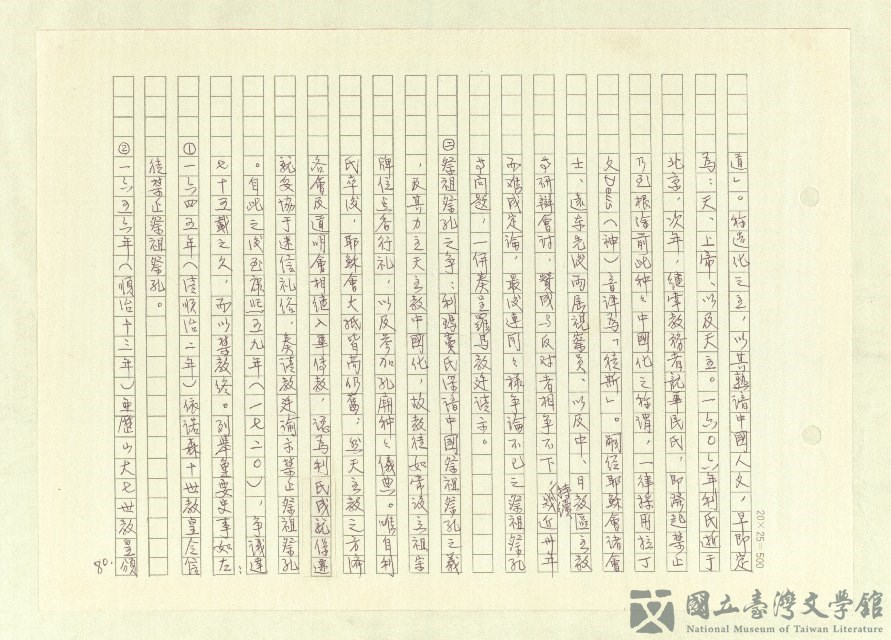 道」。符造化之主，以其熟諳中國人文，早即定
為：天、上帝、以及天主。一六０六年利氏逝于
北京，次年，繼掌教務者龍華民氏，即降起禁止
乃至根除前此種々中國化之符謂，一律採用拉丁
文Deus（神）音譯為「徒斯」。嗣經耶穌會諸會
士、遠东先後兩屆視察員、以及中、日教區主教
等研辯會討，贊成与反对者相爭不下，持續幾近卅年
而难成定論，最後連同々樣爭論不已之祭祖祭孔
等问題，一併奏呈羅馬教廷請示。
㊁祭祖祭孔之爭：利瑪竇氏深諳中國祭祖祭孔之義
，及其力主天主教中國化，故教徒如常設立祖宗
牌位与各行礼，以及参加孔廟种々儀典。唯自利
氏卒後，耶穌會大抵皆尚仍舊；然天主教之方濟
各會及道明會相繼入華佈教，認為利氏成就係遷
就妥協于迷信礼俗，奏請教廷諭示禁止祭祖祭孔
。自此之後至康熙五九年（一七二０），爭議達
七十五載之久，而以禁教終。列舉重要史事如左：
①一六四五年（清順治二年）依诺森十世教皇令信
徒禁止祭祖祭孔。
②一六五六年（順治十三年）亜歷山大七世教皇頒
80.
20×25=500
國立臺灣文學館
National Museum of Taiwan Literature